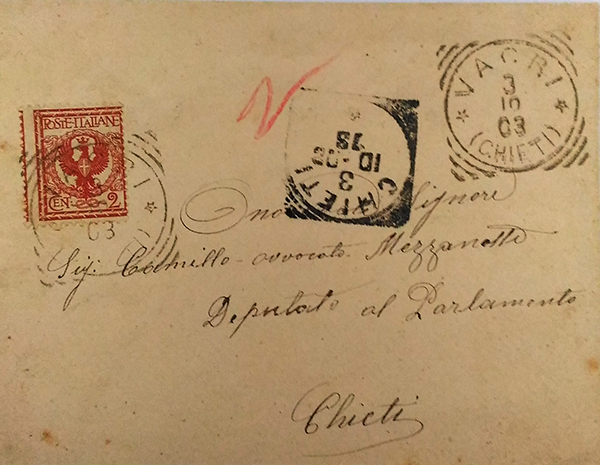 VACRI
3
10
03
(CHIETI)
POSTE ITALIANE
CEN. 2
03
CHIETI
3
10-03
Signore
Sig. Camillo avvocato Mezzanotte
Deputato al Parlamento
Chieti